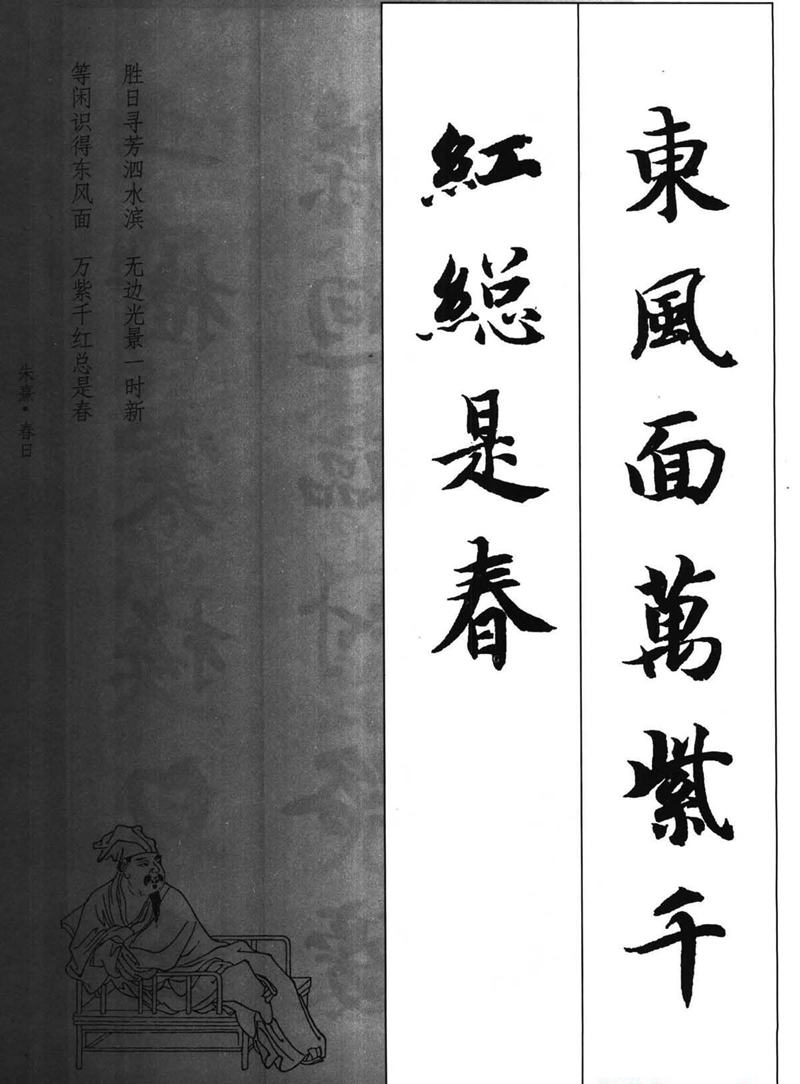 東風面萬紫千
紅緫是春
胜日寻芳泗水滨 无边光景一时新
等闲识得东风面 万紫千红总是春
朱熹·春日